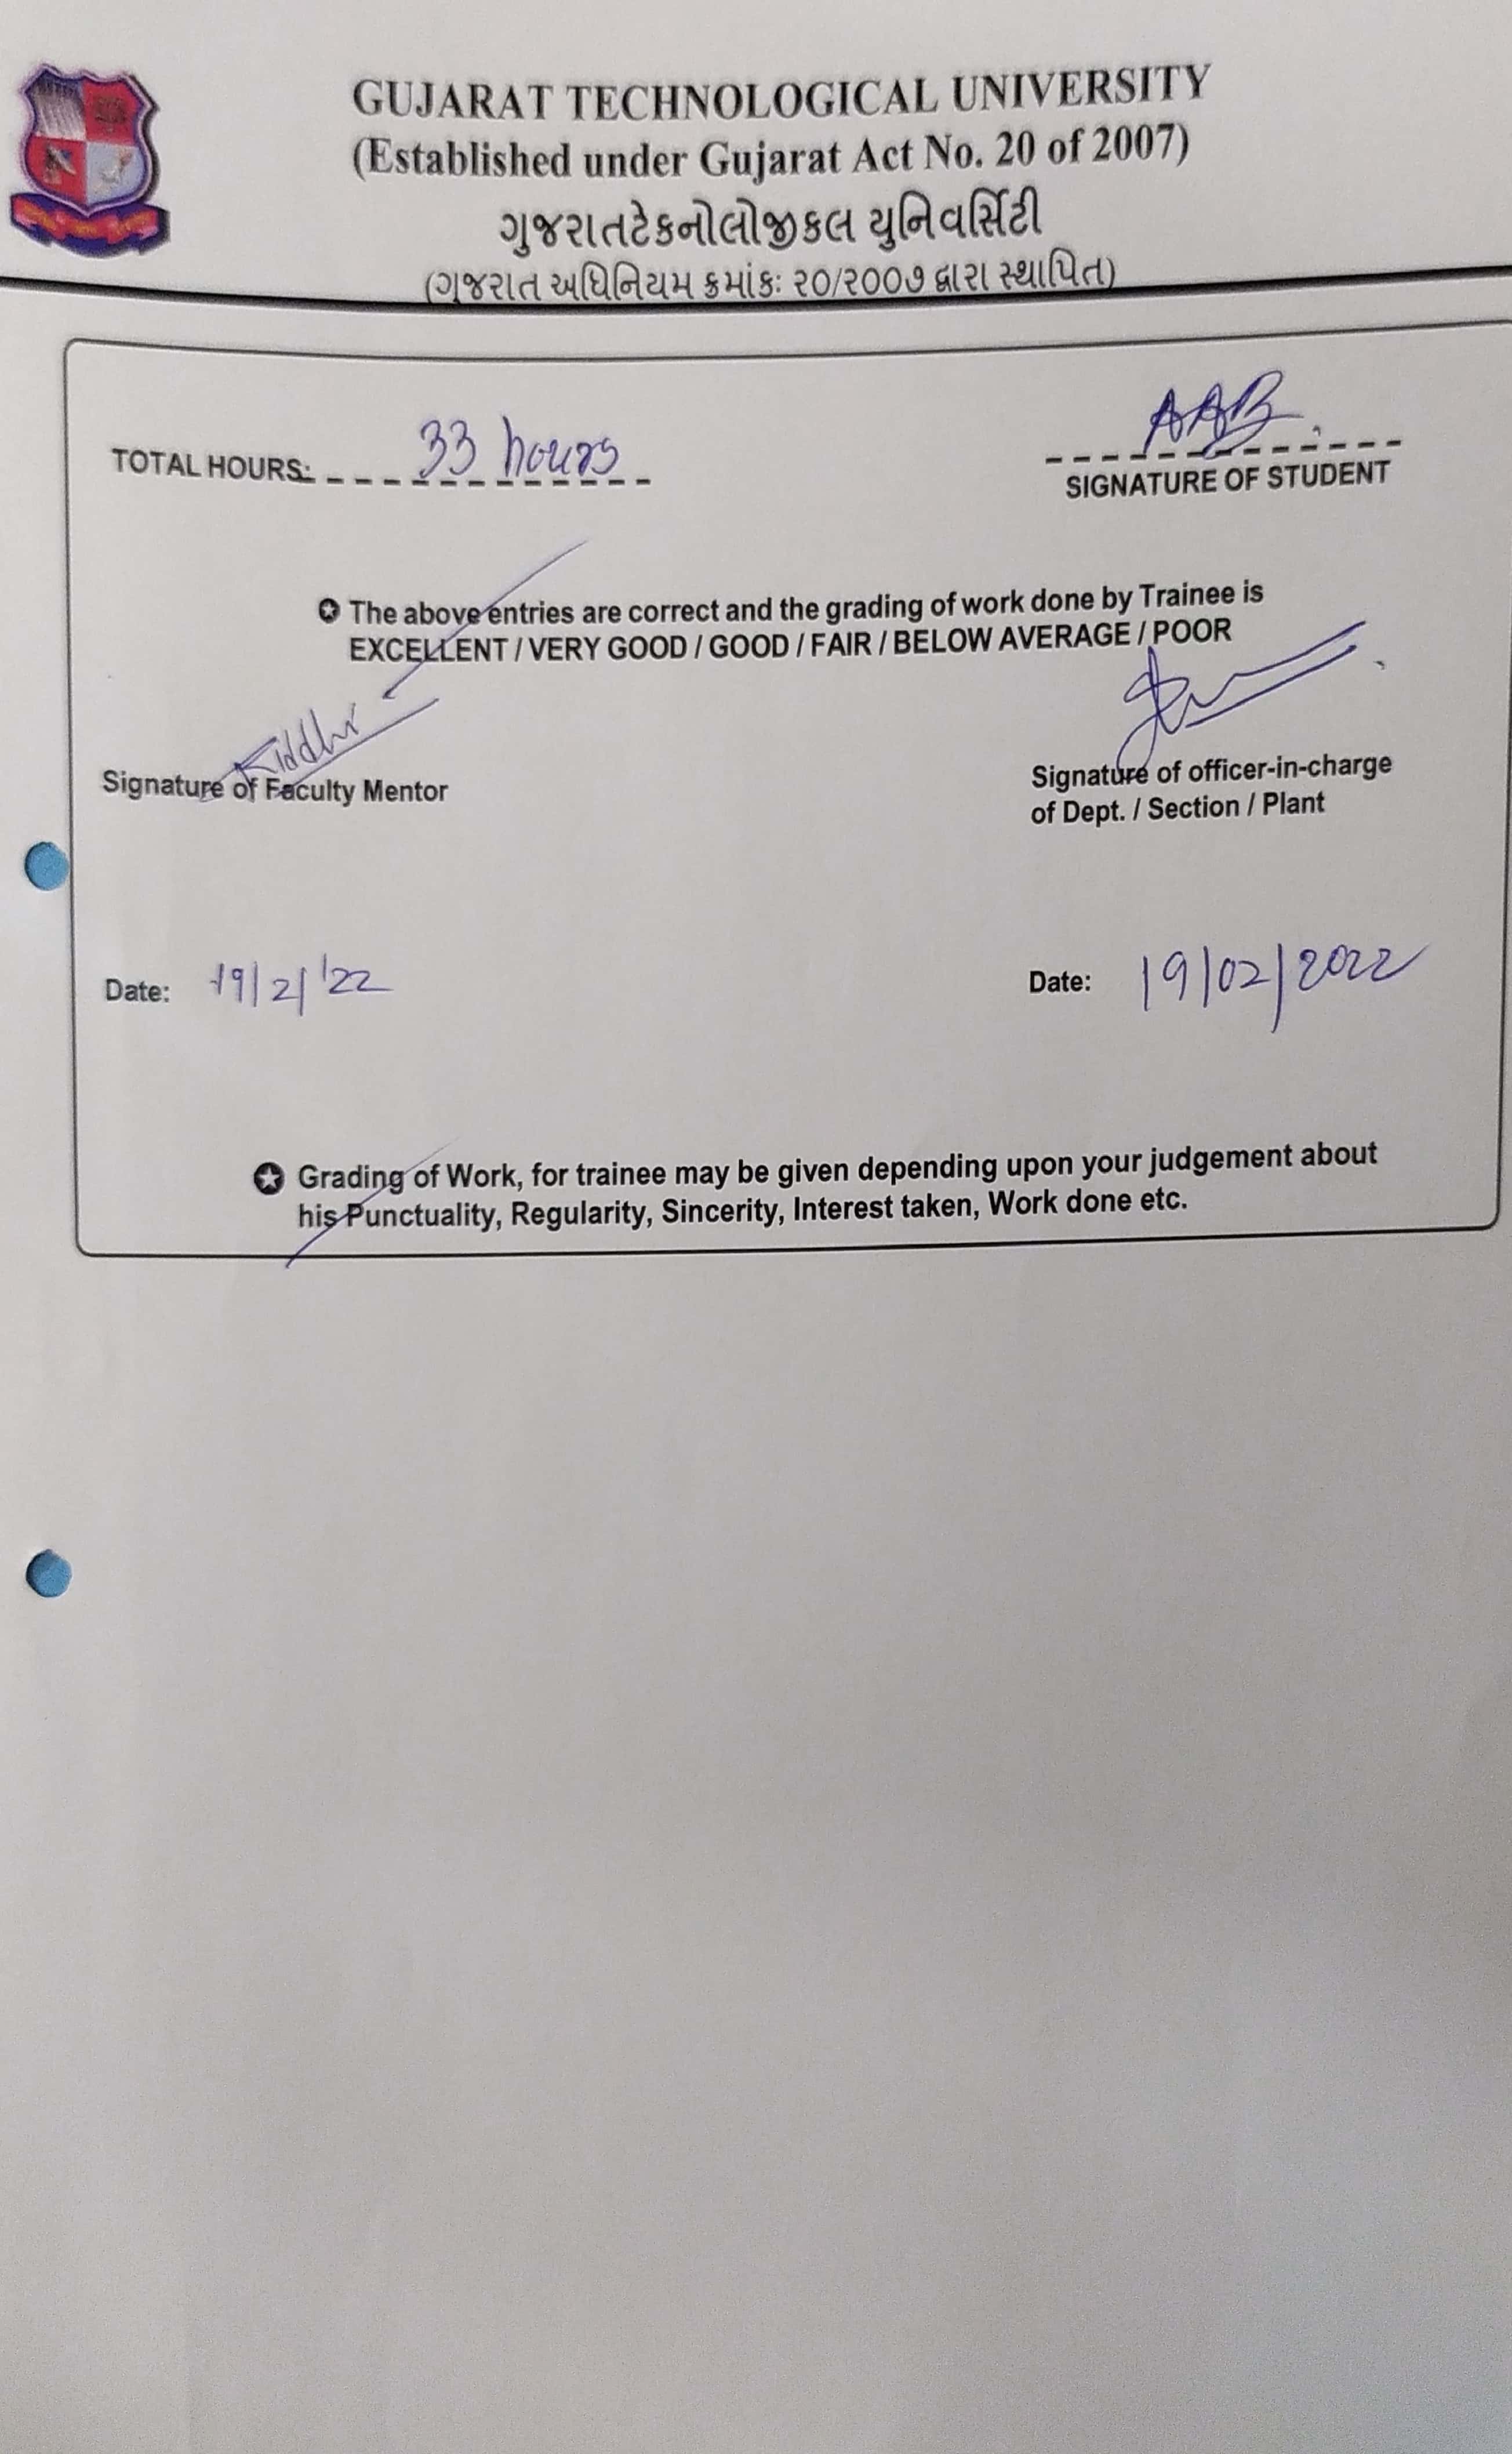 GUJARAT TECHNOLOGICAL UNIVERSITY
(Established under Gujarat Act No. 20 of 2007)
ગુજરાતટેકનોલોજીકલ યુનિવર્સિટી
(ગુજરાત અધિનિયમ ક્રમાંકઃ ૨૦/૨૦૦૭ દ્વારા સ્થાપિત)
AAB
TOTAL HOURS: 33 hours
SIGNATURE OF STUDENT
The above entries are correct and the grading of work done by Trainee is
EXCELLENT / VERY GOOD / GOOD / FAIR / BELOW AVERAGE / POOR
Signature of Faculty Mentor
Signature of officer-in-charge
of Dept. / Section / Plant
Date: 19/2/'22
Date: 19/02/2022
Grading of Work, for trainee may be given depending upon your judgement about
his Punctuality, Regularity, Sincerity, Interest taken, Work done etc.